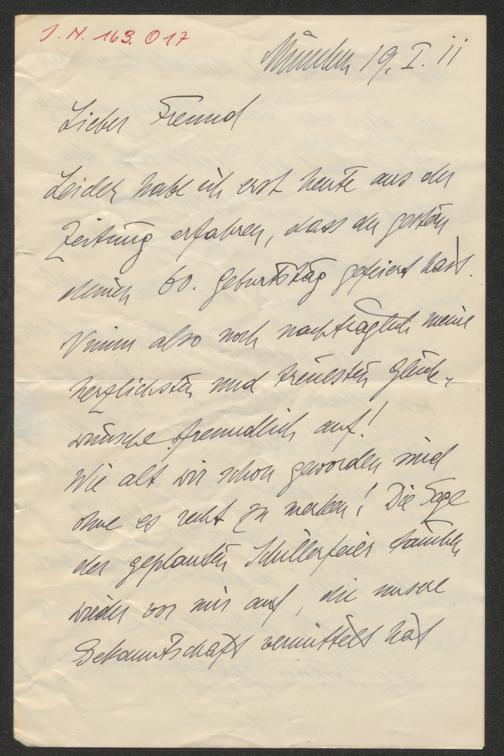 J. N. 163.017
München 19. I. 11
Lieber Freund
Leider habe ich erst heute aus der
Zeitung erfahren, dass du gestern
deinen 60. Geburtstag gefeiert hast.
Nimm also noch nachträglich meine
herzlichsten und treuesten Glück-
wünsche freundlich auf!
Wie alt wir schon geworden sind
ohne es recht zu merken! Die Tage
der geplanten Schillerfeier tauchen
wieder vor mir auf, die unsere
Bekanntschaft vermittelt hat